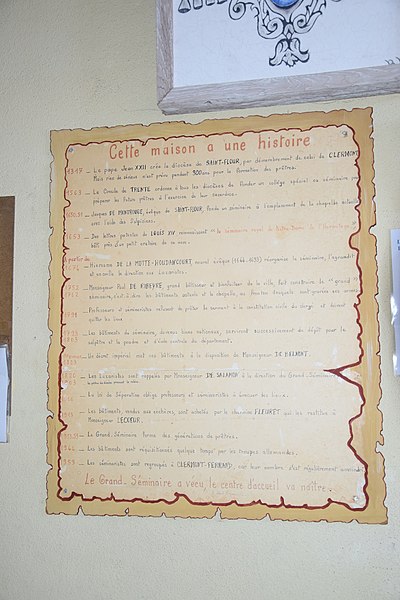 Cette maison a une histoire
1317 _ Le pape Jean XXII crée le diocèse de SAINT-FLOUR, par démembrement de celui de CLERMONT
Mais rien de sérieux n'est prévu pendant 300 ans pour la formation des prêtres.
1563 _ Le Concile de TRENTE ordonne à tous les diocèses de fonder un collège spécial ou séminaire pour
préparer les futurs prêtres à l'exercice de leur sacerdoce.
1650.51 _ Jacques DE MONTROUGE, évêque de SAINT-FLOUR, fonde un séminaire à l'emplacement de la chapelle actuelle
avec l'aide des Sulpiciens.
1653 _ Des lettres patentes de LOUIS XIV reconnaissent "le séminaire royal de Notre Dame de l'Ermitage"
bâti près d'un petit oratoire de ce nom.
A partir de
1674 _ Hiérosme DE LA MOTTE-HOUDANCOURT, nouvel évêque (1664-1693) réorganise le séminaire, l'agrandit
et en confie la direction aux Lazaristes.
1752 _ Monseigneur Paul DE RIBEYRE, grand bâtisseur et bienfaiteur de la ville, fait construire le "grand
séminaire, c'est à dire les bâtiments actuels et la chapelle,
1791 _ Professeurs et séminaristes refusent de prêter le serment à la constitution civile du clergé et doivent
quitter les lieux
1793 _ Les bâtiments du séminaire, devenus biens nationaux, serviront successivement de dépôt pour le
salpêtre et la poudre et d'école centrale du département.
_ Un décret impérial met ces bâtiments à la disposition de Monseigneur DE BELMONT.
1820 _ Les Lazaristes sont rappelés par Monseigneur DE SALAMON à la direction du Grand-Séminaire
_ La loi de Séparation oblige professeurs et séminaristes à évacuer les lieux.
_ Les bâtiments, vendus aux enchères, sont achetés par le chanoine FLEURET qui les restitue à
Monseigneur LECOEUR.
_ Le Grand-Séminaire forme des générations de prêtres.
_ Les bâtiments sont réquisitionnés quelque temps par les troupes allemandes.
_ Les séminaristes sont regroupés à CLERMONT-FERRAND, car leur nombre s'est régulièrement amoindri
Le Grand-Séminaire a vécu, le centre d'accueil va naître.